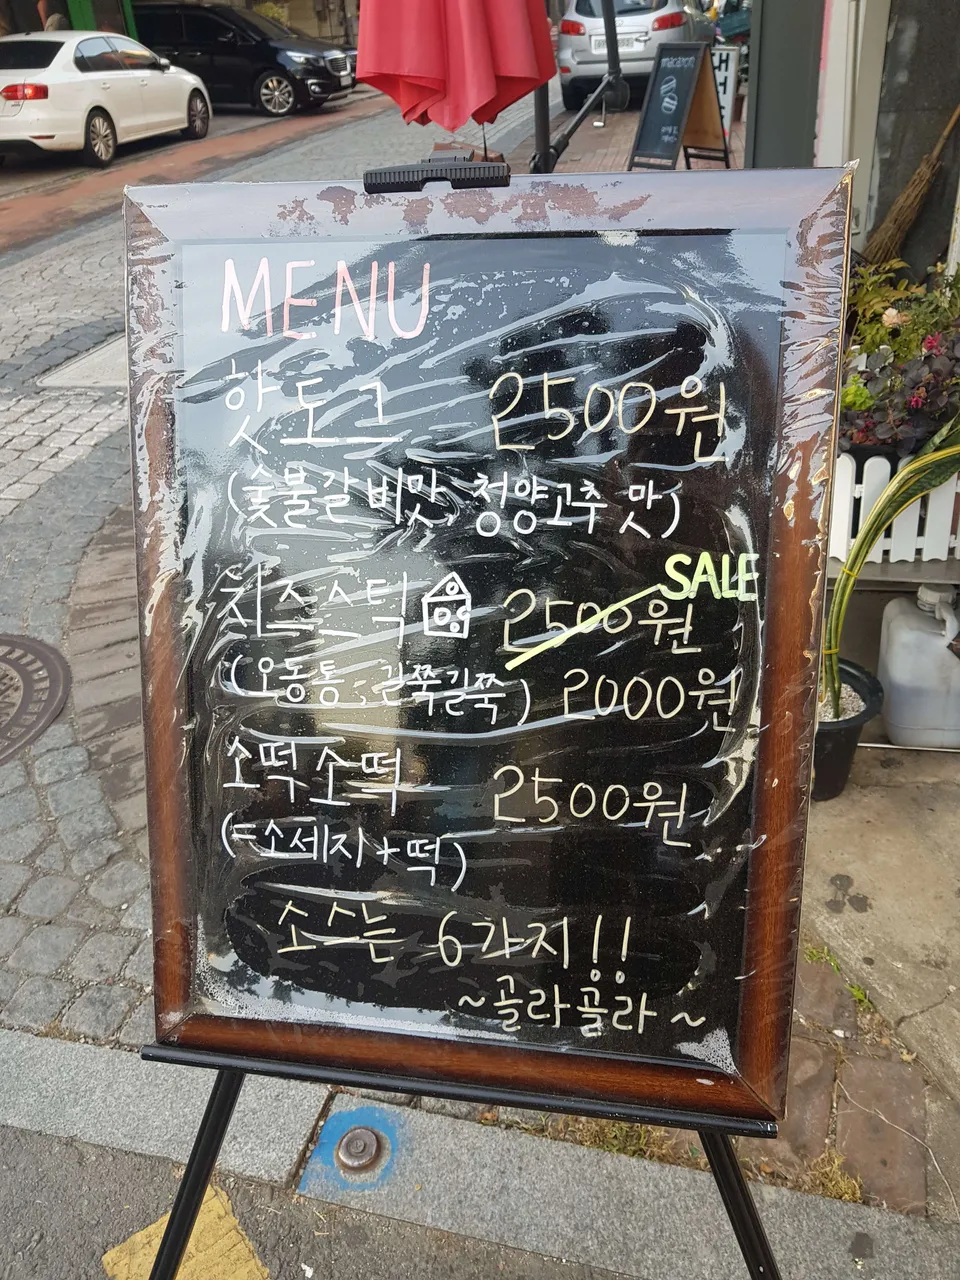 macaron
MENU
핫도그 2500원
(숯불갈비맛, 청양고추 맛)
SALE
치즈스틱 2500원
(오동통, 길쭉길쭉) 2000원
소떡소떡 2500원
(=소세지+떡)
소스는 6가지!!
~골라골라~